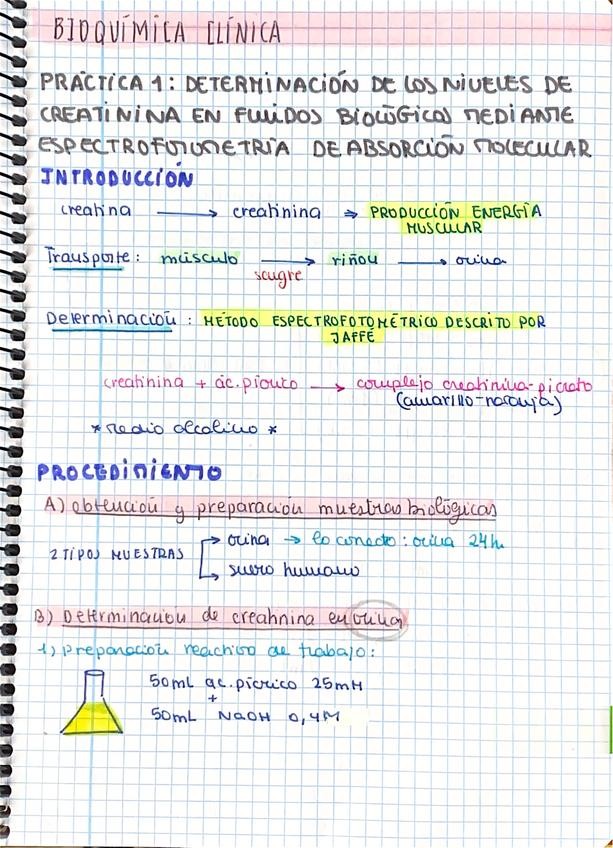 BIOQUÍMICA CLÍNICA
PRÁCTICA 1: DETERMINACIÓN DE LOS NIVELES DE
CREATININA EN FLUIDOS BIOLÓGICOS MEDIANTE
ESPECTROFOTOMETRÍA DE ABSORCIÓN MOLECULAR
INTRODUCCIÓN
creatina → creatinina ⇒ PRODUCCIÓN ENERGÍA
MUSCULAR
Transporte: músculo → riñón → orina
sangre
Determinación: MÉTODO ESPECTROFOTOMÉTRICO DESCRITO POR
JAFFÉ
creatinina + ác. pícrico → complejo creatinina-picrato
(amarillo-naranja)
* medio alcalino *
PROCEDIMIENTO
A) obtención y preparación muestras biológicas
2 TIPOS MUESTRAS
→ orina → lo correcto: orina 24h
→ suero humano
B) Determinación de creatinina en orina
1) Preparación reactivo de trabajo:
50mL ac. pícrico 25mM
+
50mL NaOH 0,4M